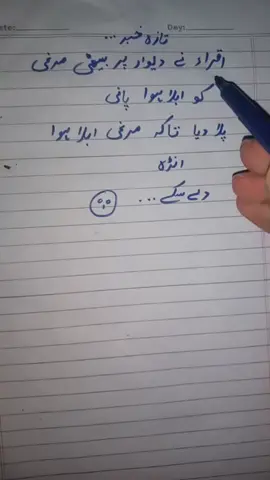 Date: Day:
تازہ خبر...
اقراء نے دیوار پر بیٹھی مرغی
کو ابلا ہوا پانی
پلا دیا تاکہ مرغی ابلا ہوا
انڈہ
دے سکے...